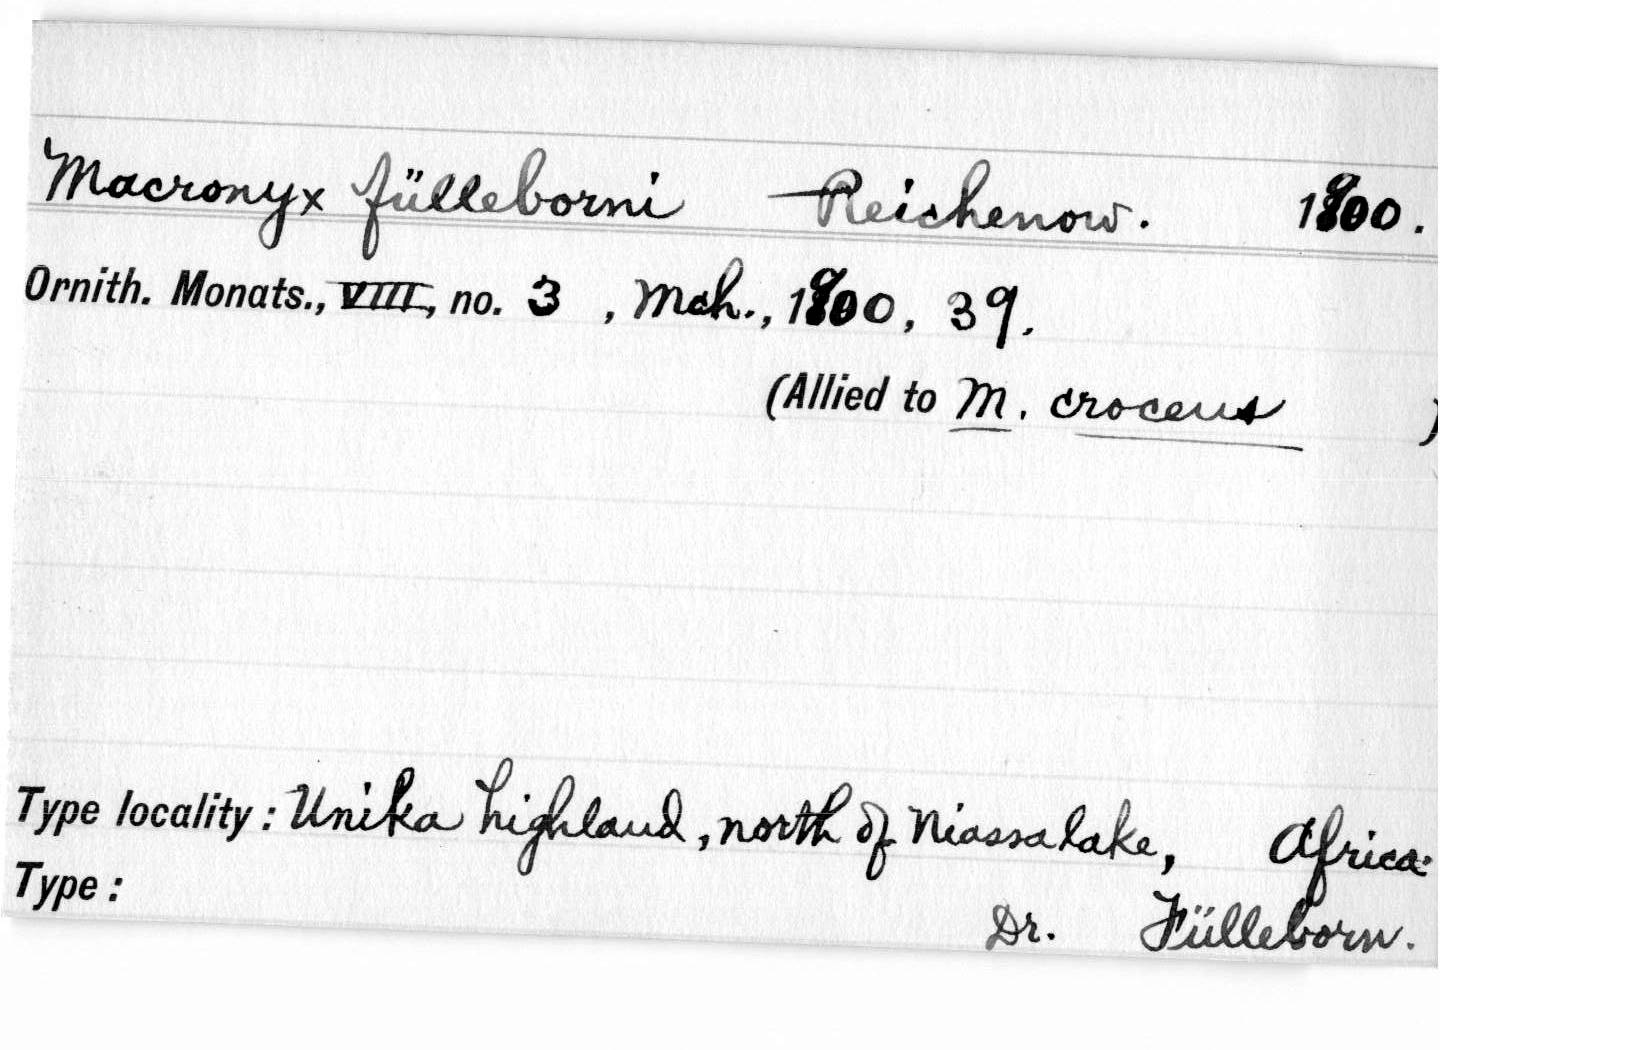 Macronyx fülleborni Reichenow. 1900.
Ornith. Monats., VIII, no. 3 , Mch., 1900, 39.
(Allied to M. croceus )
Type locality: Unika highland, north of Niassalake, Africa.
Type:
Dr. Fülleborn.